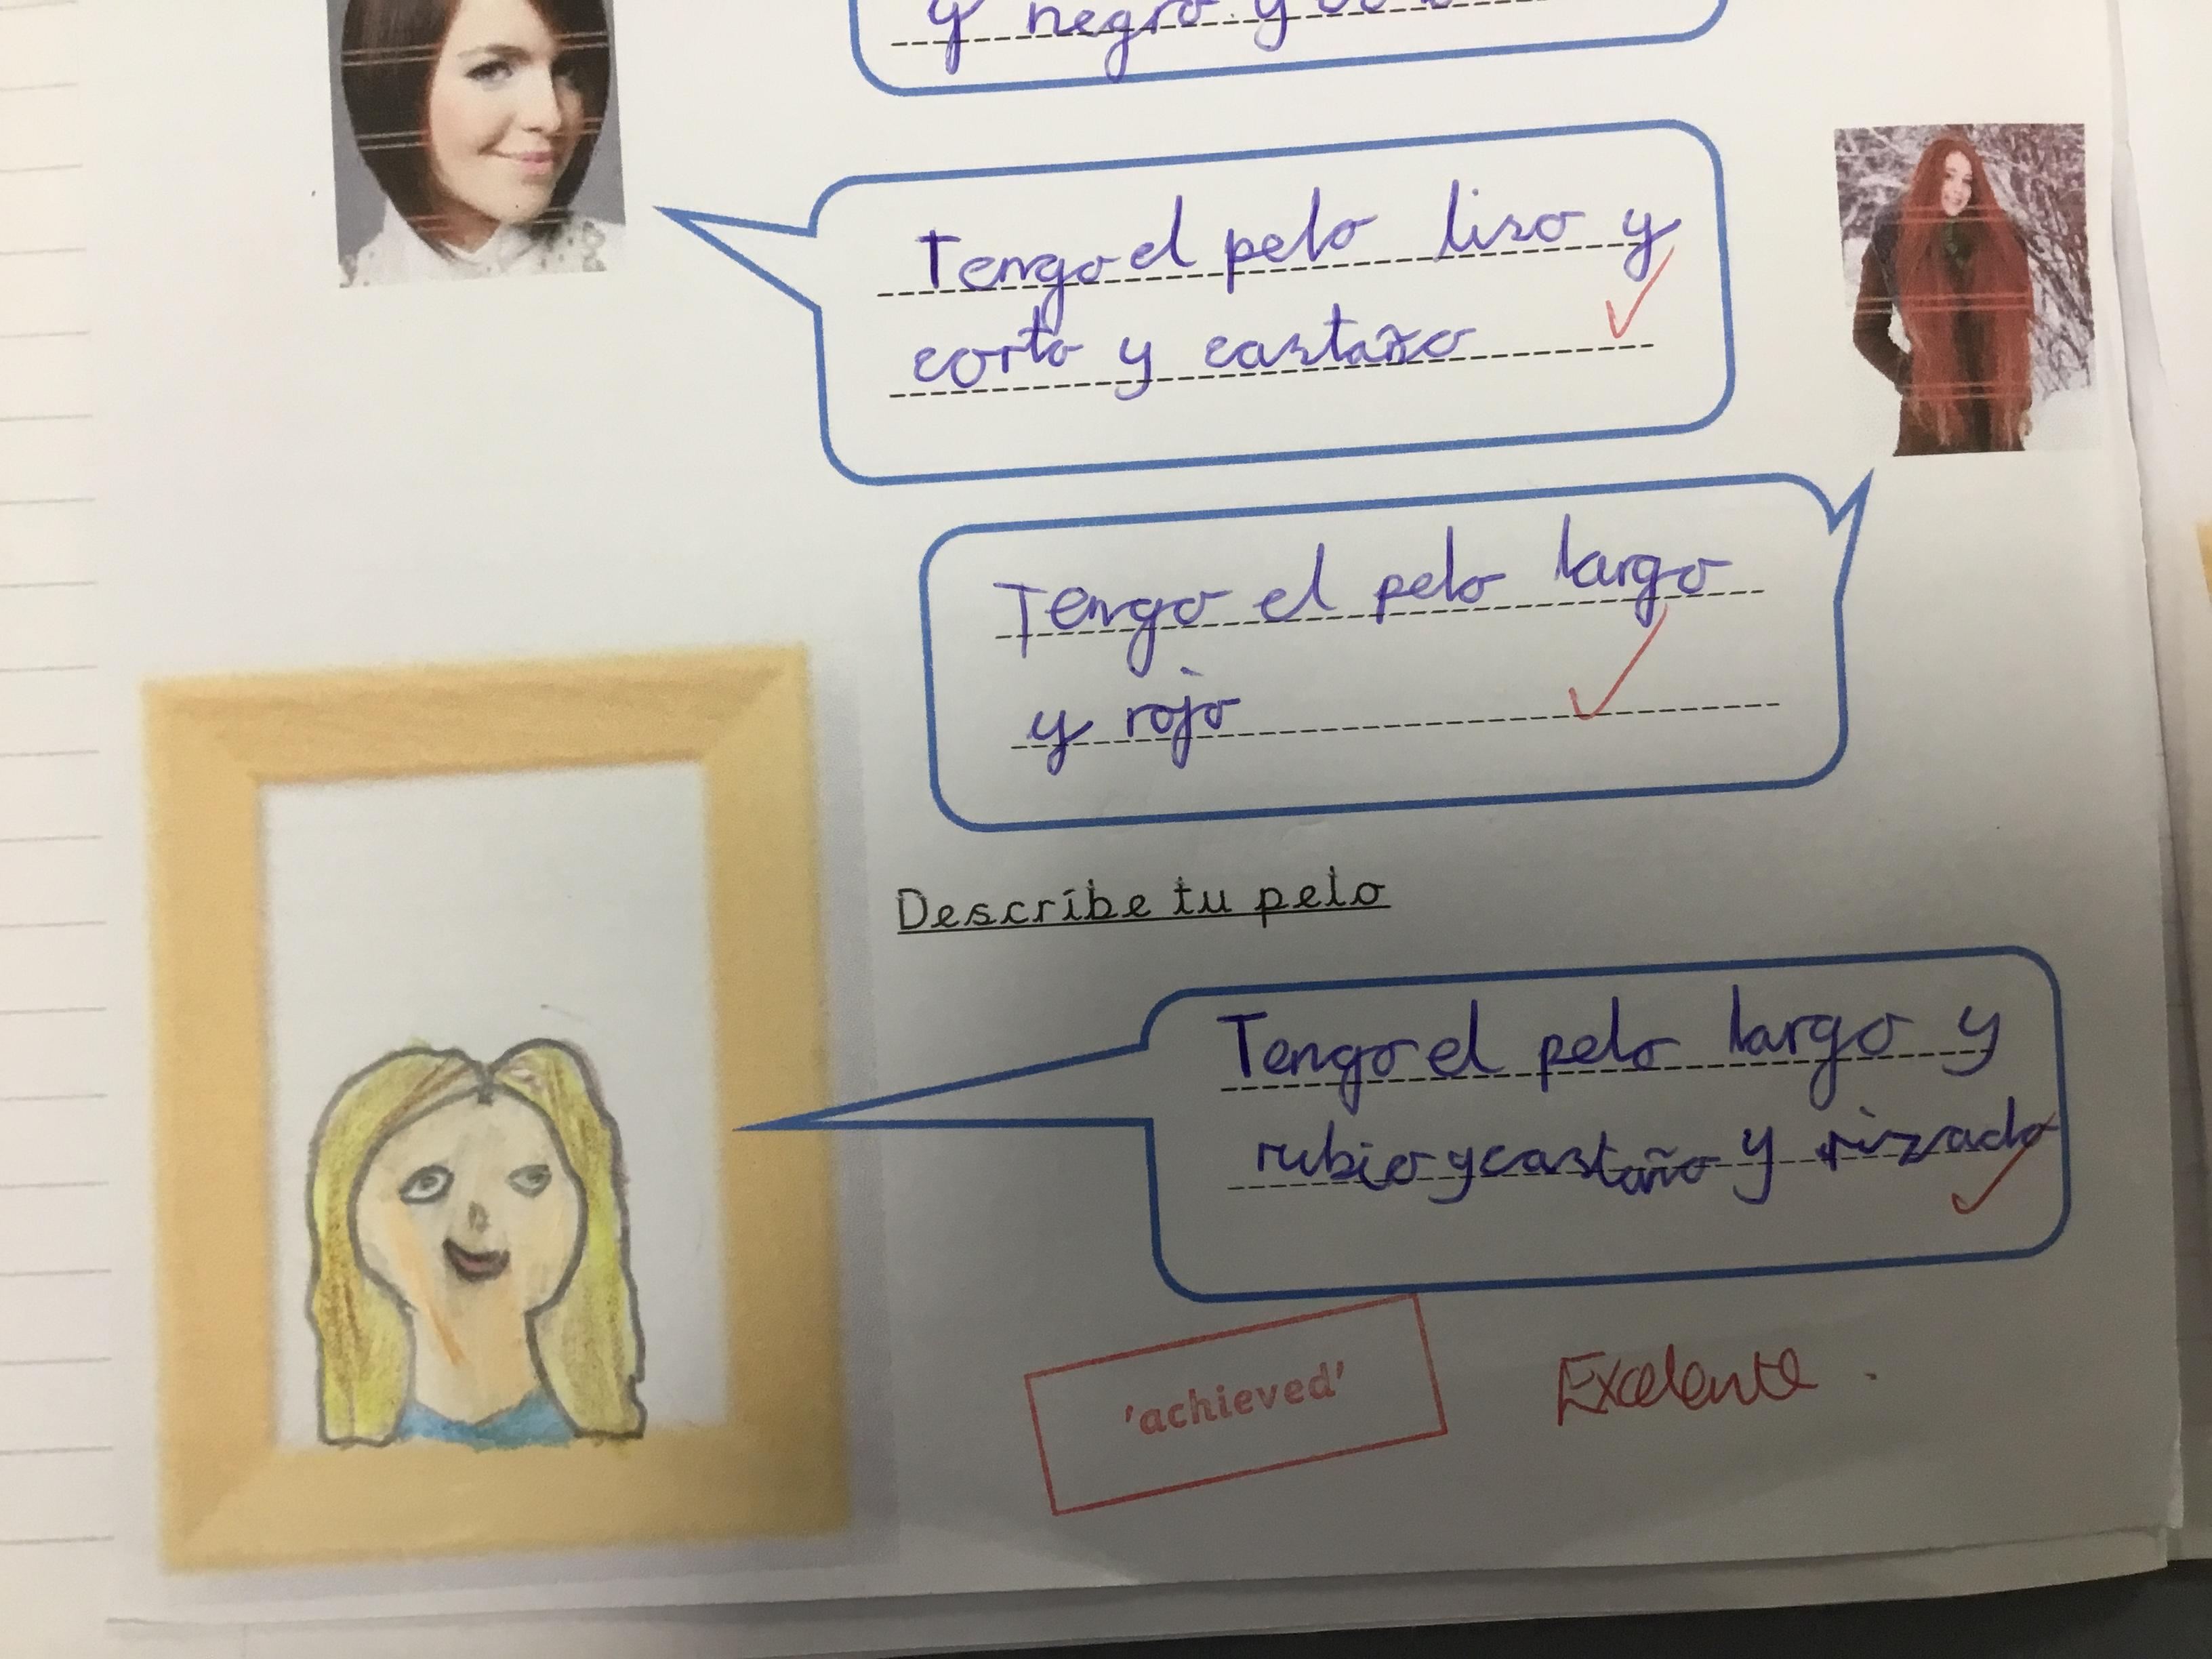 y negro y
Tengo el pelo liso y
corto y castaño
Tengo el pelo largo
y rojo
Describe tu pelo
Tengo el pelo largo y
rubio y castaño y rizado
'achieved'
Excelente.